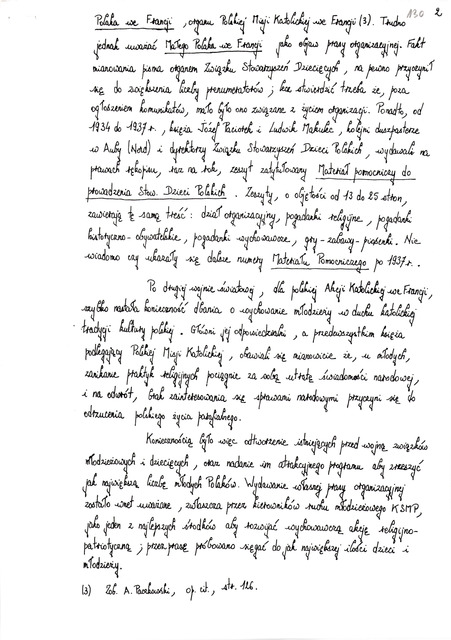 A30 2
Polaka we Francji, organu Polskiej Misji Katolickiej we Francji (3). Trudno
jednak uważać Małego Polaka we Francji jako objaw prasy organizacyjnej. Fakt
mianowania pisma organem Związku Stowarzyszeń Dziecięcych, na pewno przyczynił
się do zwiększenia liczby prenumeratorów; lecz stwierdzić trzeba że, poza
ogłoszeniem komunikatów, mało było ono związane z życiem organizacji. Ponadto, od
1934 do 1937 r., księża Józef Paciorek i Ludwik Makulec, kolejni duszpasterze
w Auby (Nord) i dyrektorzy Związku Stowarzyszeń Dzieci Polskich, wydawali na
prawach rękopisu, raz na rok, zeszyt zatytułowany Materiał pomocniczy do
prowadzenia Stow. Dzieci Polskich. Zeszyty, o objętości od 13 do 25 stron,
zawierają tę samą treść: dział organizacyjny, pogadanki religijne, pogadanki
historyczno-obywatelskie, pogadanki wychowawcze, gry-zabawy-piosenki. Nie
wiadomo czy ukazały się dalsze numery Materiału Pomocniczego po 1937 r.
Po drugiej wojnie światowej, dla polskiej Akcji Katolickiej we Francji,
szybko nastała konieczność dbania o wychowanie młodzieży w duchu katolickiej
tradycji kultury polskiej. Główni jej odpowiedzialni, a przedewszystkim księża
podlegający Polskiej Misji Katolickiej, obawiali się mianowicie że, u młodych,
zanikanie praktyk religijnych pociągnie za sobą utratę świadomości narodowej,
i na odwrót, brak zainteresowania się sprawami narodowymi przyczyni się do
odrzucenia polskiego życia parafialnego.
Koniecznością było więc odtworzenie istniejących przed wojną związków
młodzieżowych i dziecięcych, oraz nadanie im atrakcyjnego programu aby zrzeszyć
jak największą liczbę młodych Polaków. Wydawanie własnej prasy organizacyjnej
zostało wnet uważane, zwłaszcza przez kierowników ruchu młodzieżowego KSMP,
jako jeden z najlepszych środków aby rozwijać wychowawczą akcję religijno-
patriotyczną; przez prasę próbowano sięgać do jak największej ilości dzieci i
młodzieży.
(3) Zob. A. Paczkowski, op. cit., str. 126.